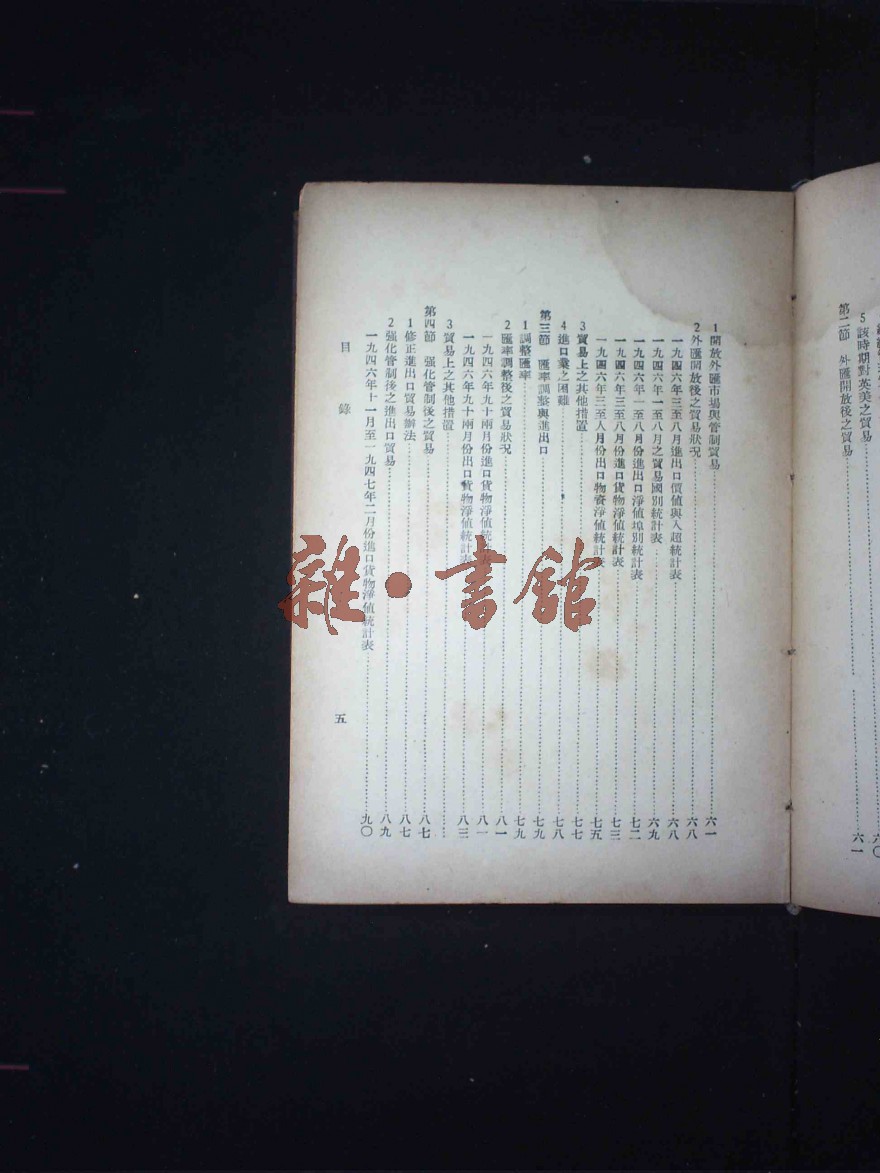 5 該時期對英美之貿易……六〇
第二節 外匯開放後之貿易……六一
1 開放外匯市場與管制貿易……六一
2 外匯開放後之貿易狀況……六八
一九四六年三至八月進出口價值與入超統計表……六八
一九四六年一至八月之貿易國別統計表……六九
一九四六年一至八月份進出口淨値埠別統計表……七二
一九四六年三至八月份進口貨物淨値統計表……七三
一九四六年三至八月份出口物資淨値統計表……七五
3 貿易上之其他措置……七七
4 進口業之困難……七八
第三節 匯率調整與進出口……七九
1 調整匯率……七九
2 匯率調整後之貿易狀況……八一
一九四六年九十兩月份進口貨物淨値統計表……八一
一九四六年九十兩月份出口貨物淨値統計表……八三
3 貿易上之其他措置……
第四節 强化管制後之貿易……八七
1 修正進出口貿易辦法……八七
2 强化管制後之進出口貿易……八九
一九四六年十一月至一九四七年二月份進口貨物淨値統計表……九〇
目錄 五
雜·書館